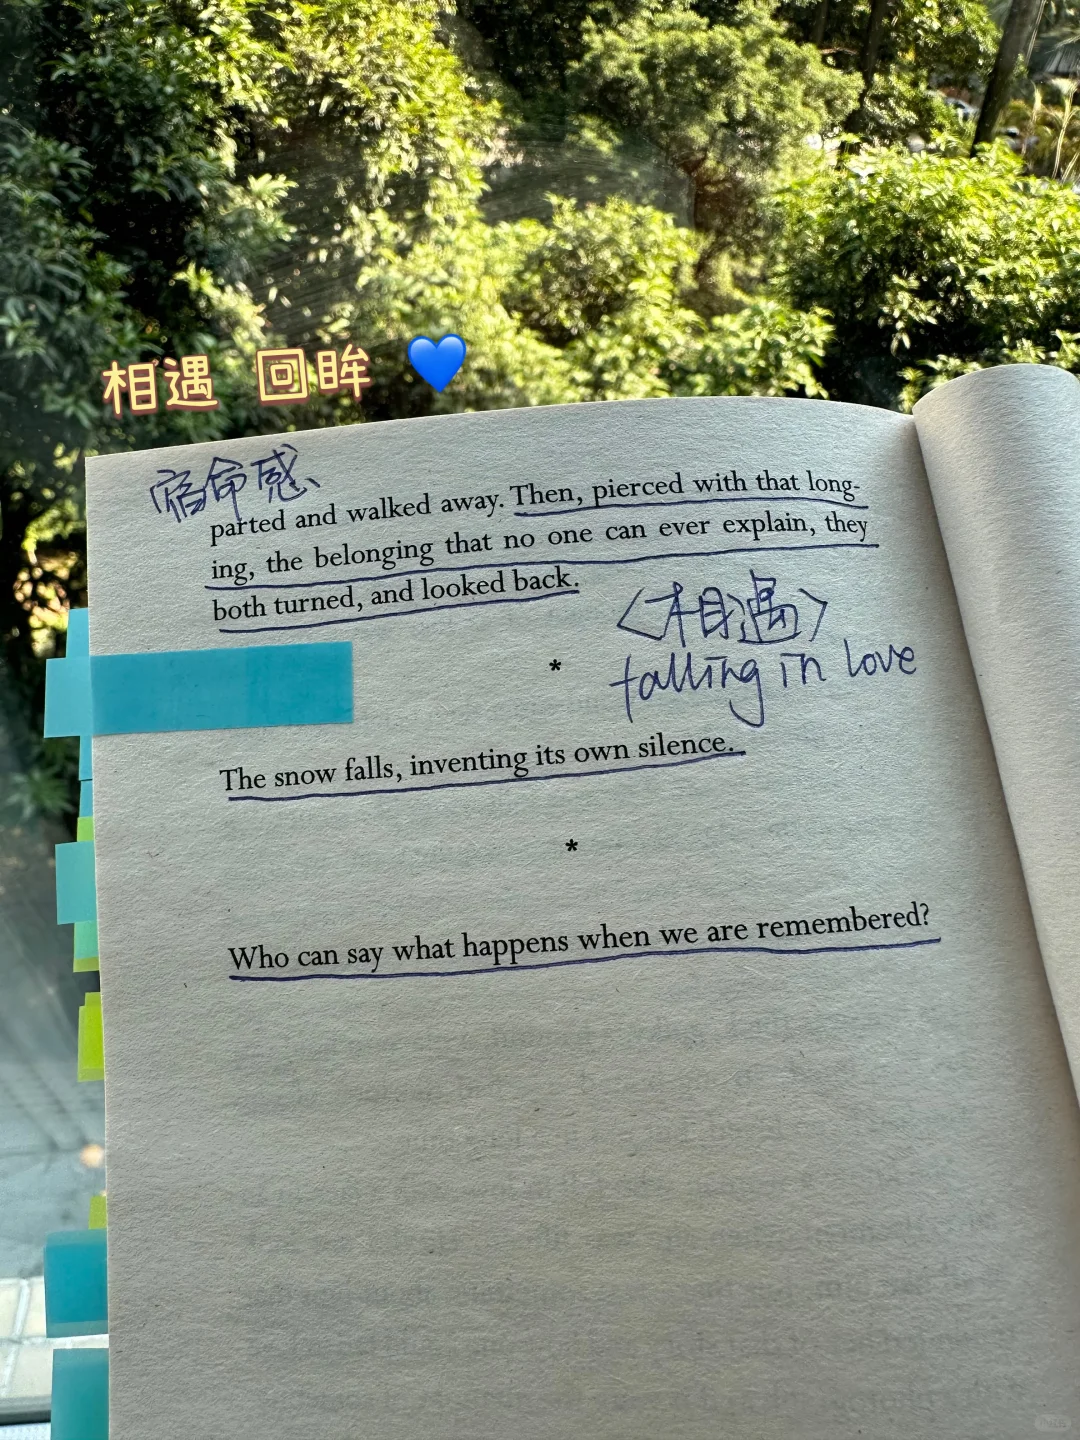 相遇 回眸 💙
宿命感、
parted and walked away. Then, pierced with that long-
ing, the belonging that no one can ever explain, they
both turned, and looked back.
<相遇>
falling in love
*
The snow falls, inventing its own silence.
*
Who can say what happens when we are remembered?